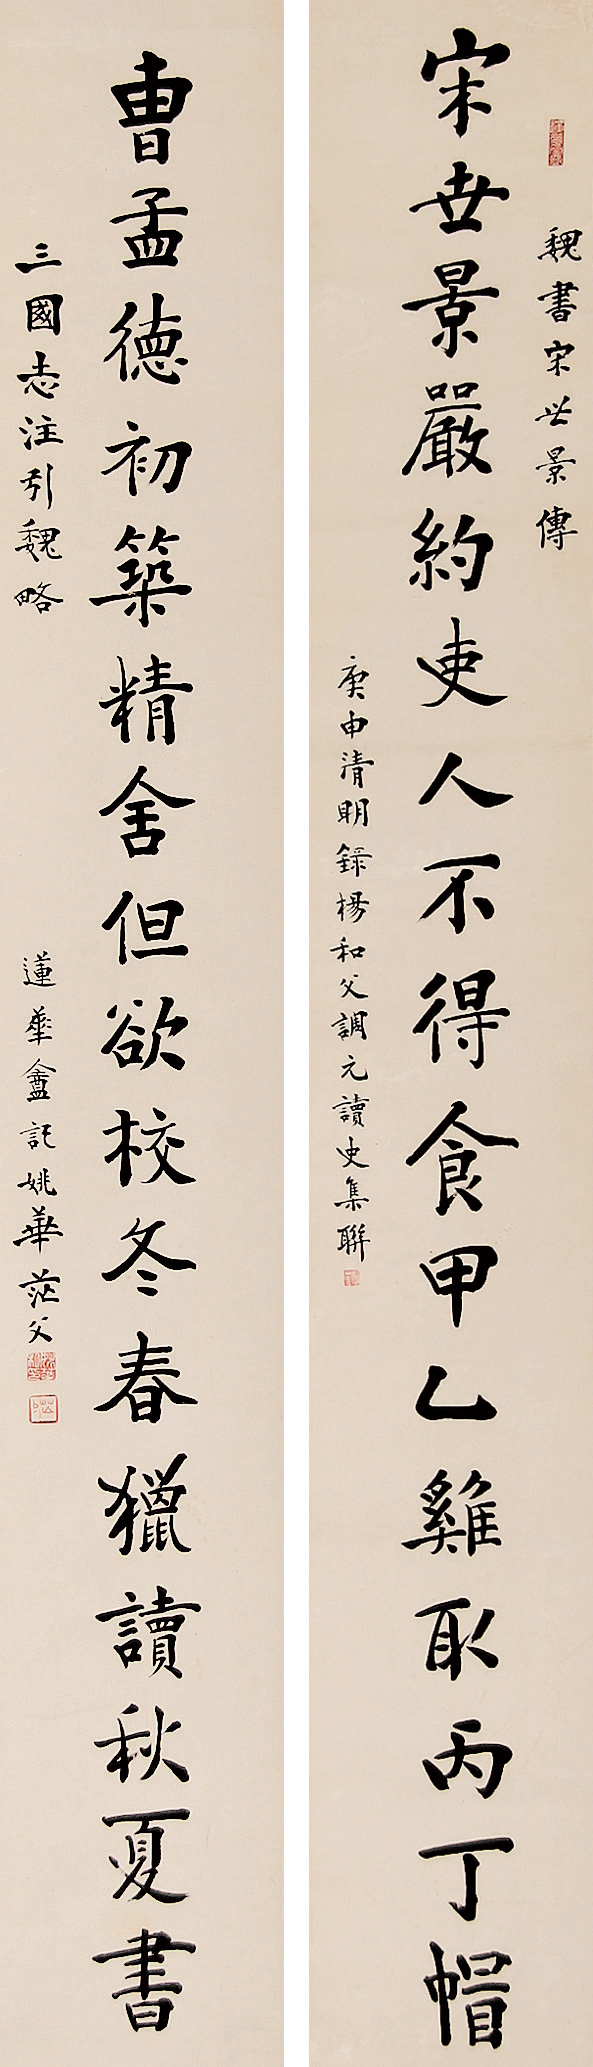 魏書宋世景傳
宋世景嚴約吏人不得食甲乙雞取丙丁帽
庚申清明錄楊和父調元讀史集聯
曹孟德初築精舍但欲校冬春獵讀秋夏書
三國志注引魏略
蓮華盦記姚華茫父